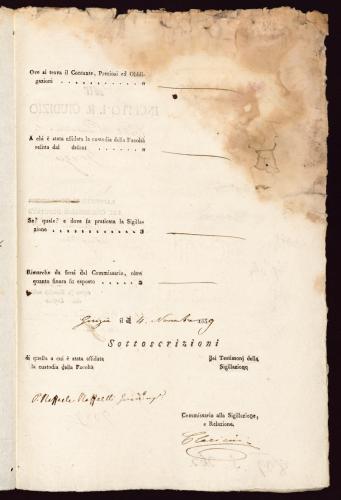 Ove si trova il Contante, Preziosi ed Obbli-
gazioni . . . . . . . . . . . . „
A chi è stata affidata la custodia della Facoltà
relitta dal defont . . . . . . . . „
Se? quale? e dove fu praticata la Sigilla-
zione . . . . . . . . . . . . . 3
Rimarche da farsi dal Commissario, oltre
quanto finora fu esposto . . . . . 3
Gorizia il dì 4. Novembre 1839
Sottoscrizioni
di quello a cui è stata affidata
la custodia della Facoltà
Dei Testimonj della
Sigillazione
P. Raffaele Raffaelli
Commissario alla Sigillazione,
e Relazione.